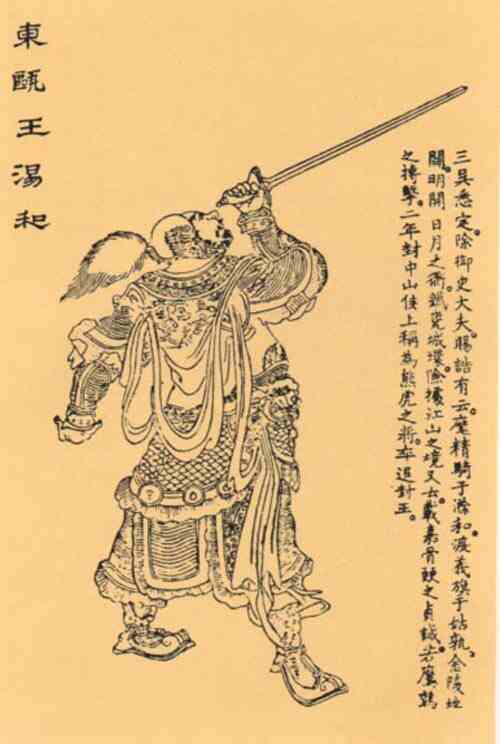 東甌王湯和
三吳悉定。除御史大夫。賜誥有云。麾精騎于滁和。渡義旗于姑孰。金陵地
闢。明開日月之衢。鐵甕城險據江山之境。又云。載嘉骨鯁之貞誠。若鷹鸇
之搏擊。二年封中山侯。上稱為熊虎之將。卒追封王。